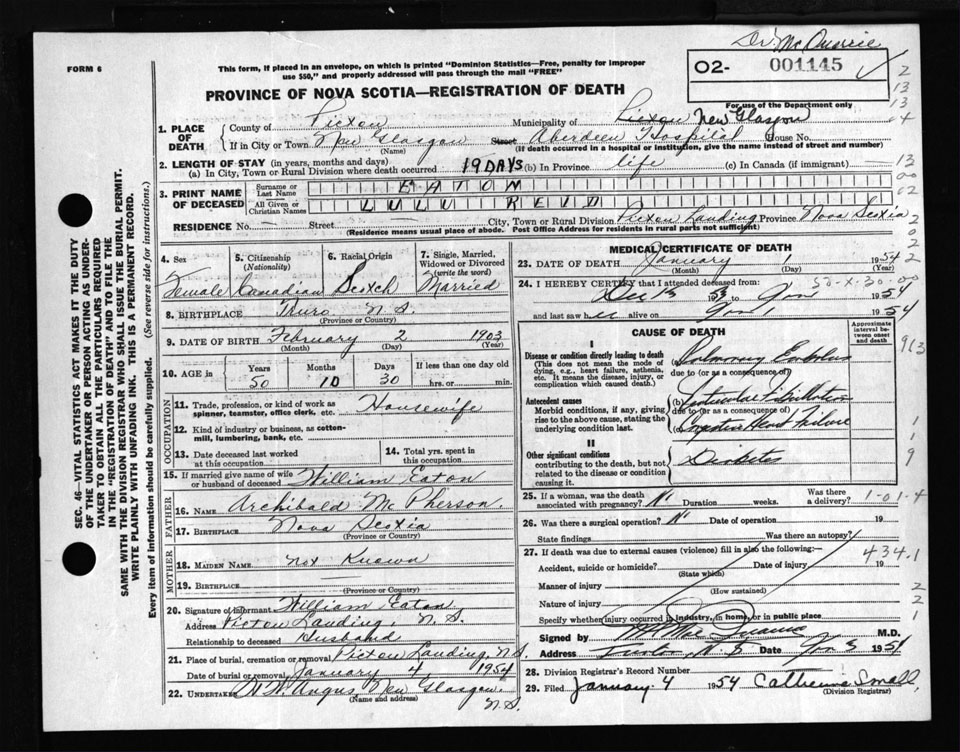 Dr. McQuarrie
FORM 6
This form, if placed in an envelope, on which is printed "Dominion Statistics—Free, penalty for improper
use $50," and properly addressed will pass through the mail "FREE"
02- 001145
PROVINCE OF NOVA SCOTIA—REGISTRATION OF DEATH
For use of the Department only
1. PLACE OF DEATH County of Pictou Municipality of Pictou New Glasgow
If in City or Town New Glasgow (Name) Street Aberdeen Hospital House No.
(If death occurred in a hospital or institution, give the name instead of street and number)
2. LENGTH OF STAY (in years, months and days)
(a) In City, Town or Rural Division where death occurred 19 DAYS (b) In Province life (c) In Canada (if immigrant)
3. PRINT NAME OF DECEASED Surname or Last Name EATON
All Given or Christian Names LULU REID
RESIDENCE No. Street City, Town or Rural Division Pictou Landing Province Nova Scotia
(Residence means usual place of abode. Post Office Address for residents in rural parts not sufficient)
SEC. 46—VITAL STATISTICS ACT MAKES IT THE DUTY
OF THE UNDERTAKER OR PERSON ACTING AS UNDER-
TAKER TO OBTAIN ALL THE PARTICULARS REQUIRED
IN THE "REGISTRATION OF DEATH" AND TO FILE THE
SAME WITH THE DIVISION REGISTRAR WHO SHALL ISSUE THE BURIAL PERMIT.
WRITE PLAINLY WITH UNFADING INK. THIS IS A PERMANENT RECORD.
Every item of information should be carefully supplied. (See reverse side for instructions.)
4. Sex Female
5. Citizenship (Nationality) Canadian
6. Racial Origin Scotch
7. Single, Married, Widowed or Divorced (write the word) Married
8. BIRTHPLACE Truro N.S.
(Province or Country)
9. DATE OF BIRTH February 2 1903
(Month) (Day) (Year)
10. AGE in Years 50 Months 10 Days 30 If less than one day
hrs. or min.
OCCUPATION
11. Trade, profession, or kind of work as
spinner, teamster, office clerk, etc. Housewife
12. Kind of industry or business, as cotton-
mill, lumbering, bank, etc.
13. Date deceased last worked
at this occupation
14. Total yrs. spent in
this occupation
15. If married give name of wife
or husband of deceased William Eaton
FATHER
16. NAME Archibald McPherson.
17. BIRTHPLACE Nova Scotia
(Province or Country)
MOTHER
18. MAIDEN NAME not Known
19. BIRTHPLACE
(Province or Country)
20. Signature of informant William Eaton.
Address Pictou Landing, N.S.
Relationship to deceased Husband
21. Place of burial, cremation or removal Pictou Landing, N.S.
Date of burial or removal January 4 1954
22. UNDERTAKER Angus, New Glasgow,
(Name and address) N.S.
MEDICAL CERTIFICATE OF DEATH
23. DATE OF DEATH January 1 1954
(Month) (Day) (Year)
24. I HEREBY CERTIFY that I attended deceased from:
Dec 13 1953 to Jan 1954
and last saw her alive on Jan 1 1954
50-X-30-00
CAUSE OF DEATH
Approximate interval between onset and death
I
Disease or condition directly leading to death
(This does not mean the mode of
dying, e.g., heart failure, asthenia,
etc. It means the disease, injury, or
complication which caused death.)
(a) Pulmonary Embolus
due to (or as a consequence of)
Antecedent causes
Morbid conditions, if any, giving
rise to the above cause, stating the
underlying condition last.
(b) Fibrillation
due to (or as a consequence of)
(c) Congestive Heart Failure
II
Other significant conditions
contributing to the death, but not
related to the disease or condition
causing it.
Diabetes
25. If a woman, was the death
associated with pregnancy? No Duration weeks. Was there
a delivery? 1-01-4
26. Was there a surgical operation? No Date of operation 19
State findings Was there an autopsy?
27. If death was due to external causes (violence) fill in also the following:— 434.1
Accident, suicide or homicide? (State which) Date of injury 19
Manner of injury (How sustained)
Nature of injury
Specify whether injury occurred in industry, in home, or in public place
Signed by M.D.
Address N.S. Date Jan 3 1954
28. Division Registrar's Record Number
29. Filed January 4 1954 Catherine Small,
(Division Registrar)